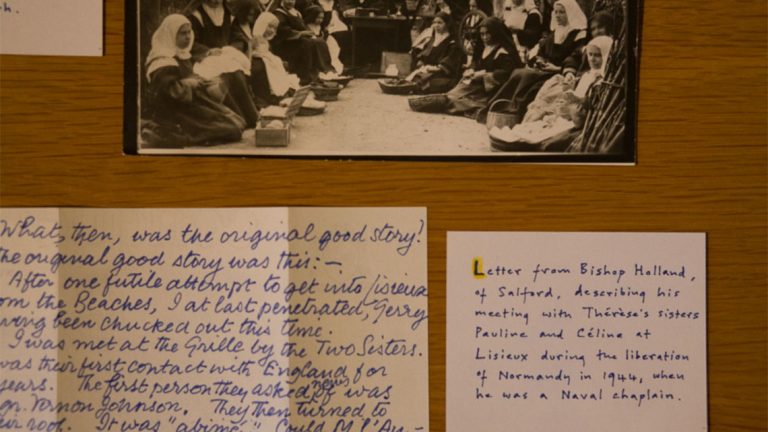 h.
What, then, was the original good story?
the original good story was this:—
After one futile attempt to get into Lisieux
om the Beaches, I at last penetrated, Gerry
ving been chucked out this time.
I was met at the Grille by the Two Sisters.
was their first contact with England for
years. The first person they asked news of was
gr. Vernon Johnson. They then turned to
eir roof. It was "abîmé". Could M. l'Au-
Letter from Bishop Holland,
of Salford, describing his
meeting with Thérèse's sisters
Pauline and Céline at
Lisieux during the liberation
of Normandy in 1944, when
he was a Naval chaplain.